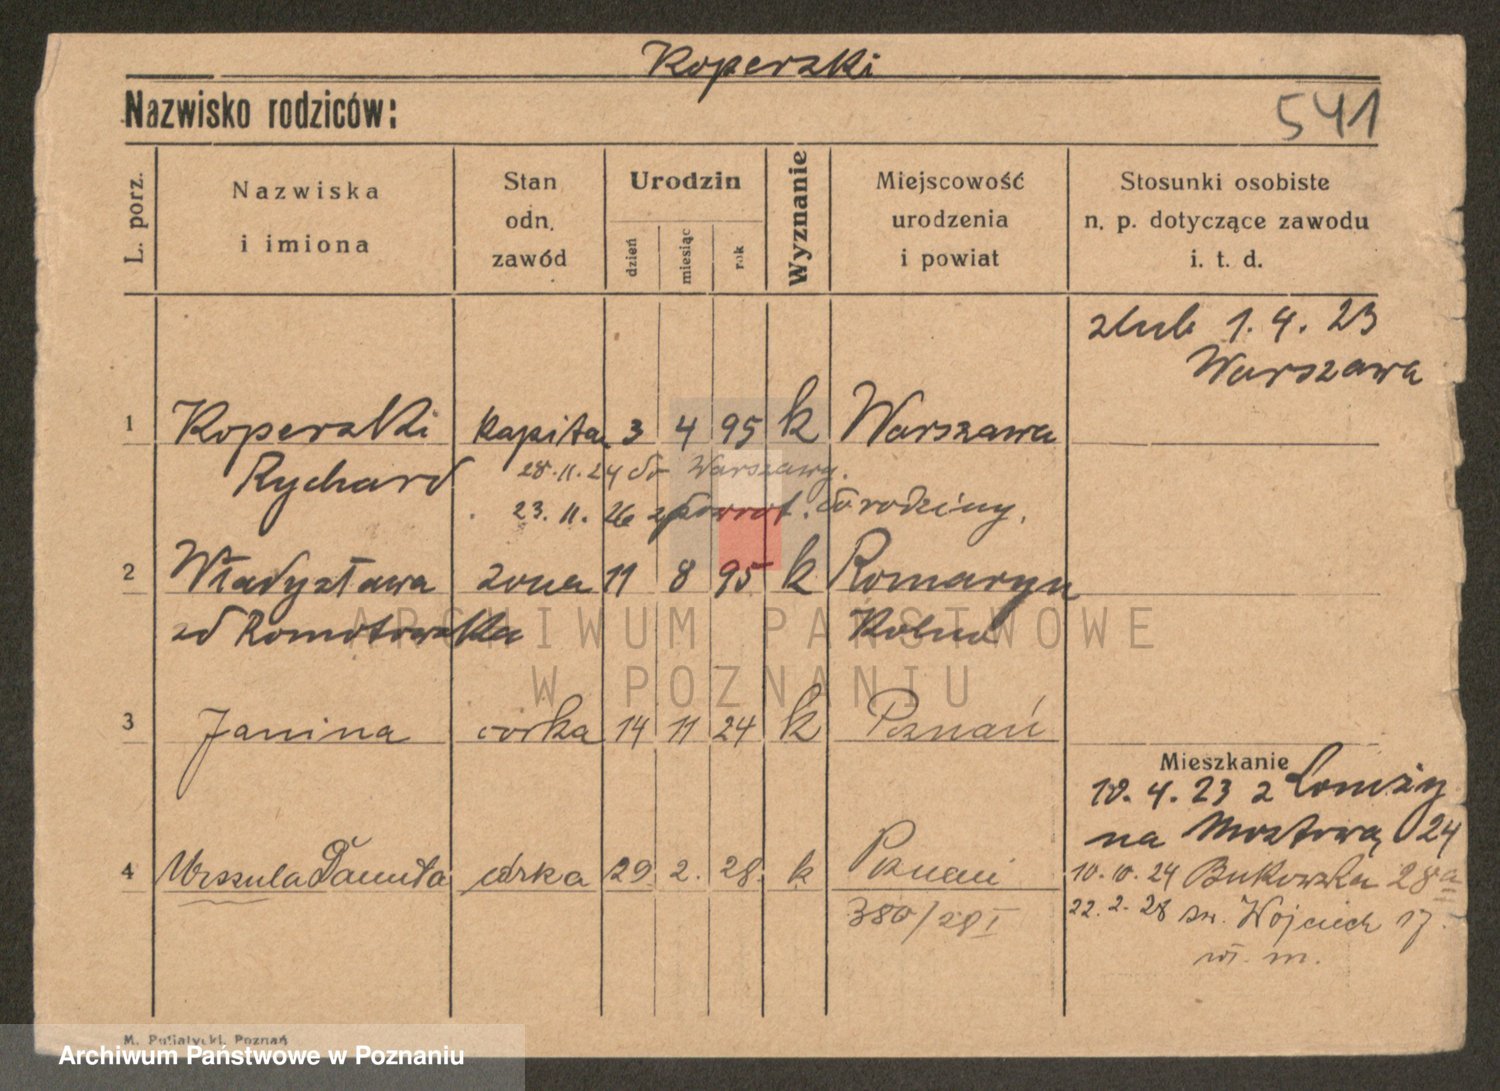 Koperski
Nazwisko rodziców:
541
L. porz.
Nazwiska
i imiona
Stan
odn.
zawód
Urodzin
dzień
miesiąc
rok
Wyznanie
Miejscowość
urodzenia
i powiat
Stosunki osobiste
n. p. dotyczące zawodu
i. t. d.
zlub 1. 4. 23
Warszawa
1 Koperski kapita. 3 4 95 k Warszawa
Rychard 28.11.24 do Warszawy.
23. 11. 26 zpowrot. do rodziny.
2 Władysława zona 11 8 95 k Romaryn
zd Romotowska Kolno
3 Janina corka 14 11 24 k Poznań
Mieszkanie
10. 4. 23 z Lomży
na Mostową 24
4 Urszula Danuta córka 29. 2. 28. k Poznań
10. 10. 24 Bukowska 28a
380/28 I
22. 2. 28 św. Wojciech 17.
wł. m.
M. Putiatycki, Poznań
ARCHIWUM PAŃSTWOWE
W POZNANIU
Archiwum Państwowe w Poznaniu